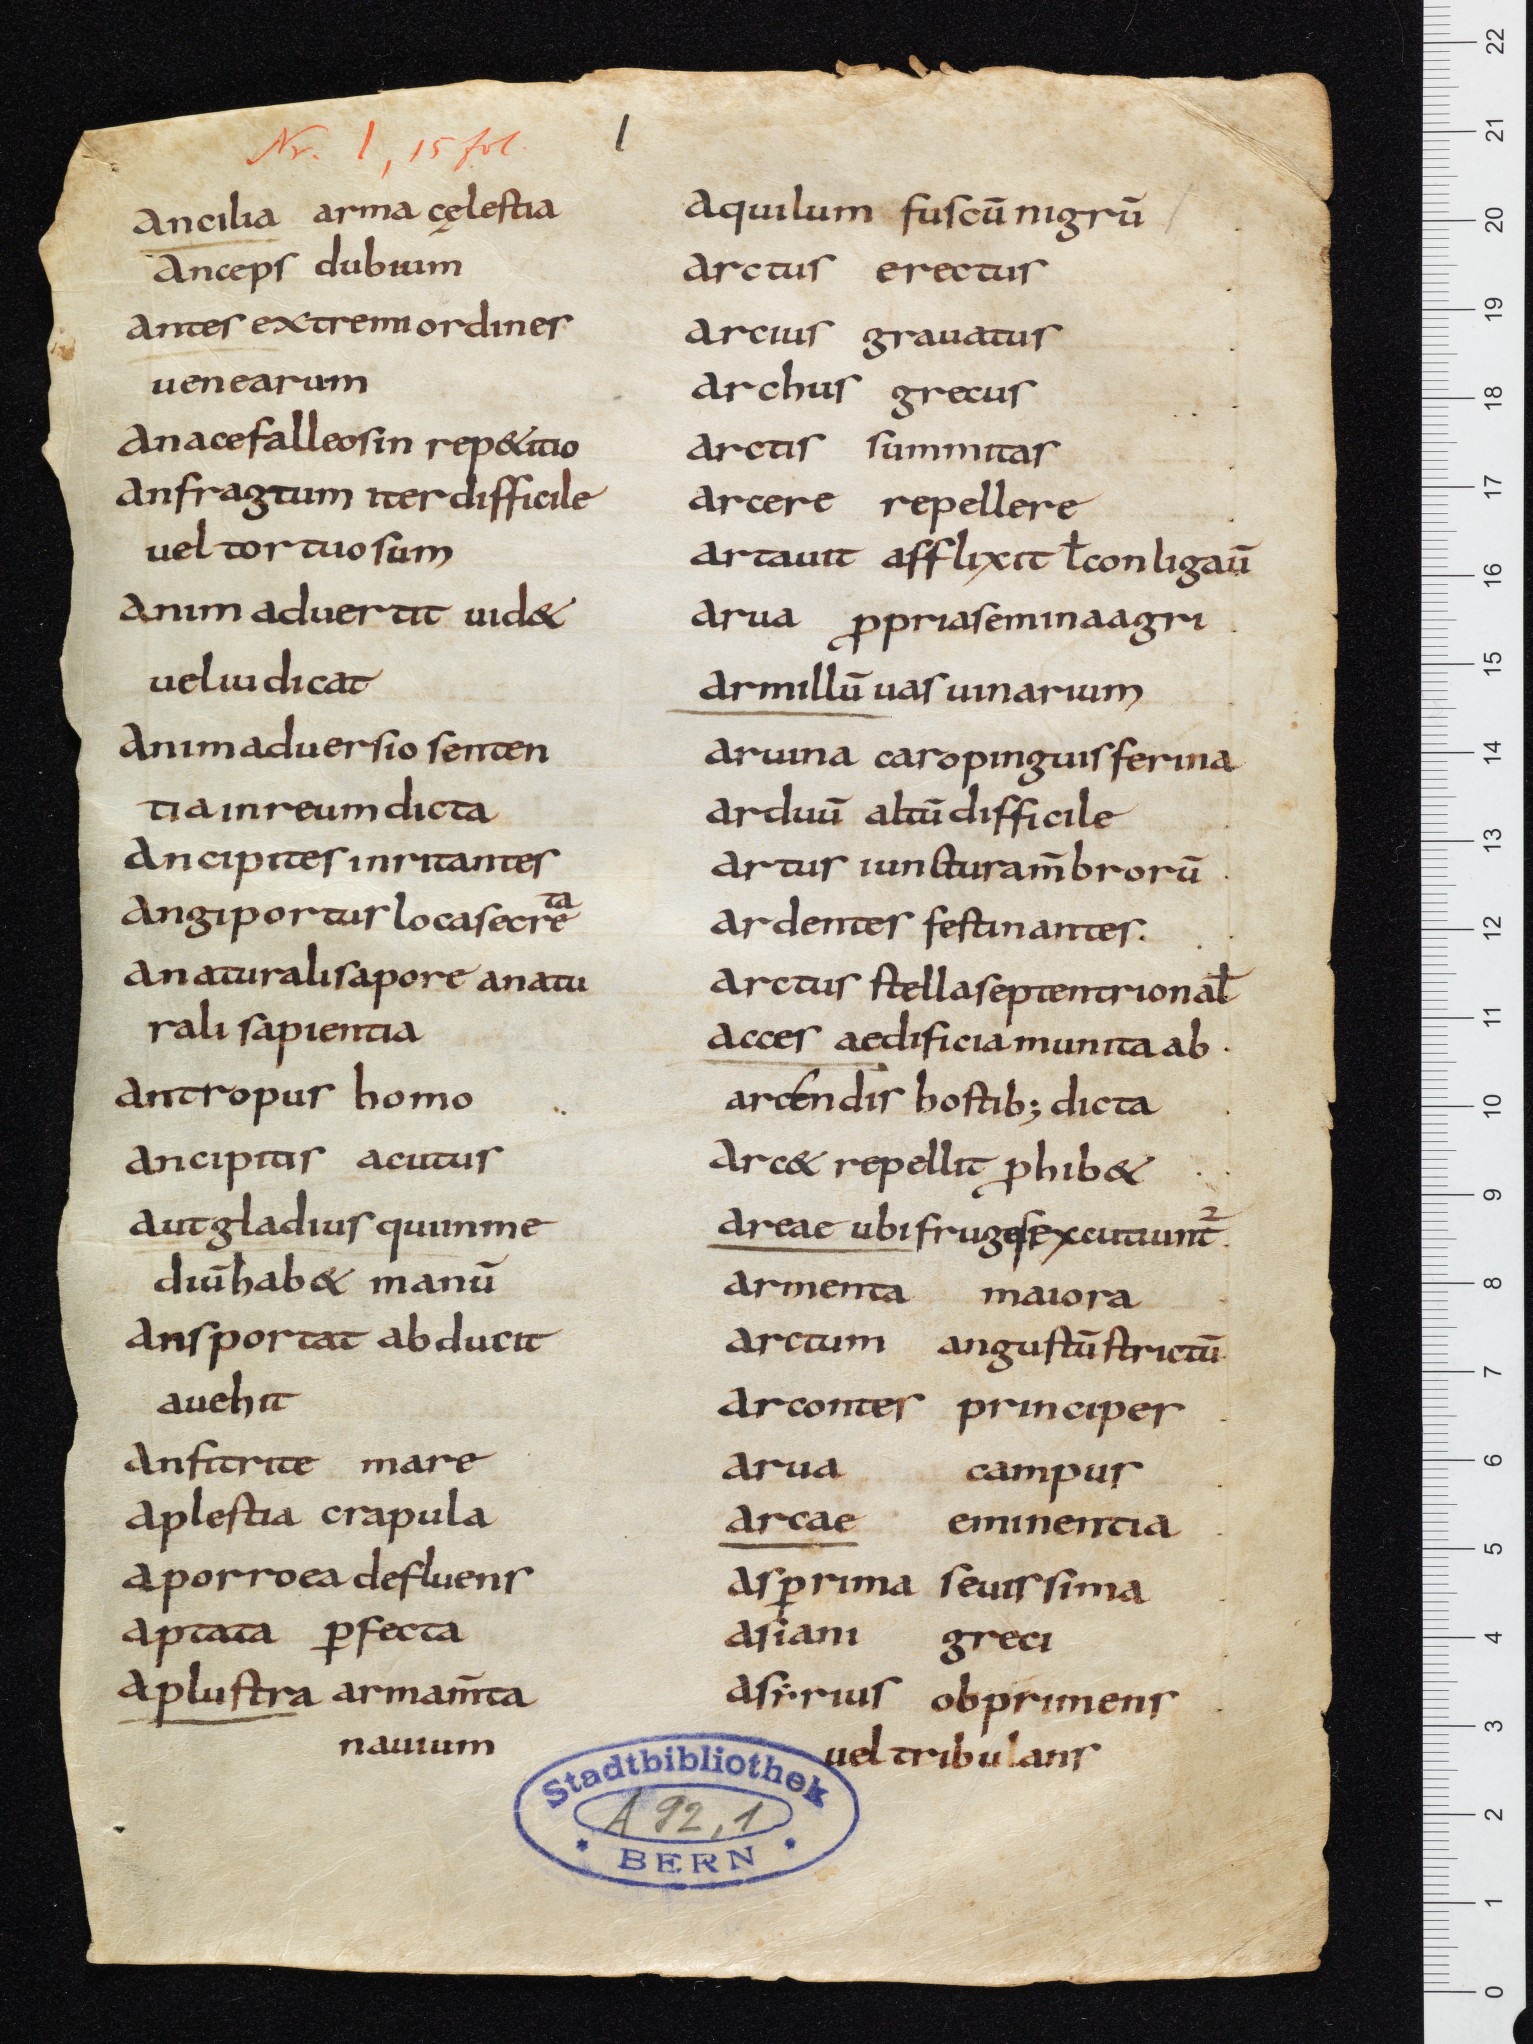 Nr. 1, 15 fol.
1
Ancilia arma cęlestia
Anceps dubium
Antes extremi ordines
uenearum
Anacefalleosin rep&itio
Anfragtum iter difficile
uel tortuosum
Animaduertit uid&
uel iudicat
Animaduersio senten
tia in reum dicta
Ancipites inritantes
Angiportus loca secreta
Anaturali sapore anatu
rali sapientia
Antropus homo
Ancipitis acutus
aut gladius qui in me
diū hab& manū
Ansportat abducit
auehit
Anfitrite mare
Aplestia crapula
Aporroea defluens
Aptata ꝑfecta
Aplustra armam̄ta
nauium
Aquilum fuscū nigrū
Arctus erectus
Arcius grauatus
Archus grecus
Arctis summitas
Arcere repellere
Artauit afflixit ł conligaū
Arua ꝓpria semina agri
Armillū uas uinarium
Aruina caro pinguis ferina
Arduū altū difficile
Artus iunctura m̄brorū
Ardentes festinantes.
Arctus stella septentrionał
Acces aedificia munita ab
arcendis hostib; dicta
Arc& repellit ꝓhib&
Areae ubi fruges excutiunt᷑
Armenta maiora
Arctum angustū strictū
Arcontes principes
Arua campus
Arcae eminentia
Asꝑrima seuissima
Asiani greci
Asrrius obprimens
uel tribulans
Stadtbibliothek
A 92,1
BERN
22
21
20
19
18
17
16
15
14
13
12
11
10
9
8
7
6
5
4
3
2
1
0